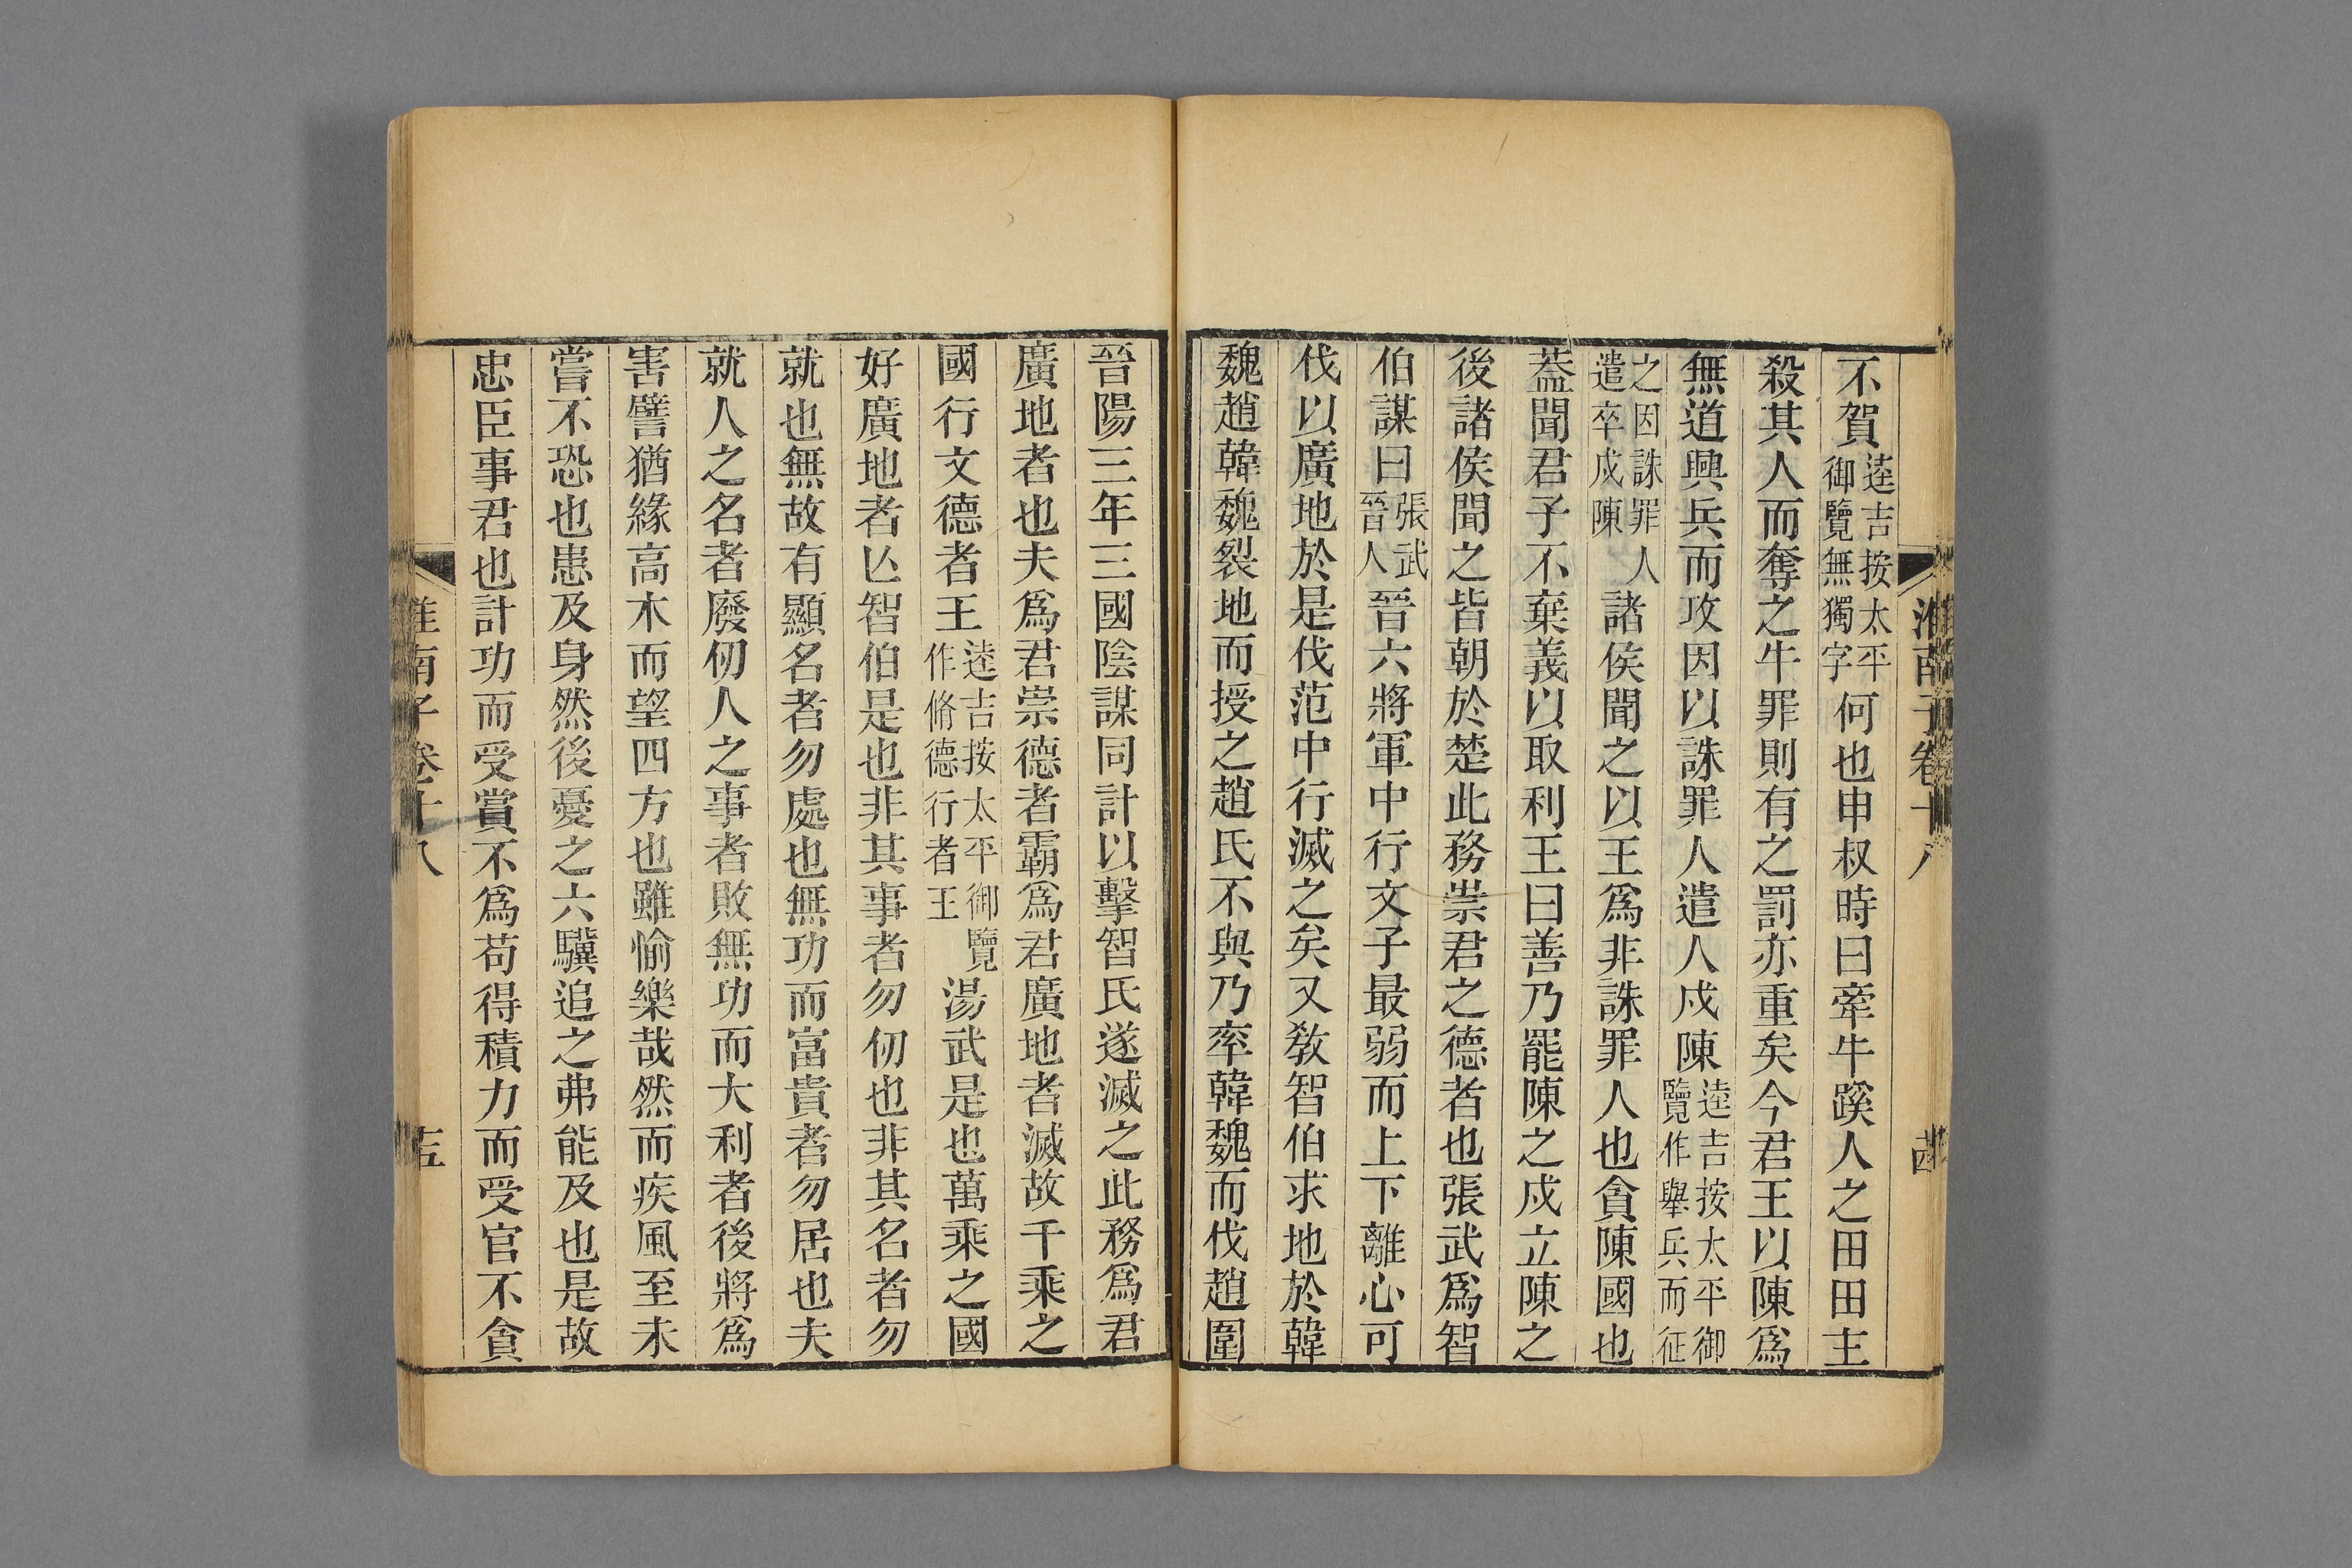 淮南子卷十八
不賀逵吉按太平御覽無獨字何也申叔時曰牽牛蹊人之田田主
殺其人而奪之牛罪則有之罰亦重矣今君王以陳爲
無道興兵而攻因以誅罪人遣人戍陳逵吉按太平御覽作舉兵而征
之因誅罪人遣卒戍陳諸侯聞之以王爲非誅罪人也貪陳國也
葢聞君子不棄義以取利王曰善乃罷陳之戍立陳之
後諸侯聞之皆朝於楚此務崇君之德者也張武爲智
伯謀曰張武晉人晉六將軍中行文子最弱而上下離心可
伐以廣地於是伐范中行滅之矣又教智伯求地於韓
魏趙韓魏裂地而授之趙氏不與乃率韓魏而伐趙圍
晉陽三年三國陰謀同計以擊智氏遂滅之此務爲君
廣地者也夫爲君崇德者霸爲君廣地者滅故千乘之
國行文德者王逵吉按太平御覽作脩德行者王湯武是也萬乘之國
好廣地者亾智伯是也非其事者勿仞也非其名者勿
就也無故有顯名者勿處也無功而富貴者勿居也夫
就人之名者廢仞人之事者敗無功而大利者後將爲
害譬猶緣高木而望四方也雖愉樂哉然而疾風至未
嘗不恐也患及身然後憂之六驥追之弗能及也是故
忠臣事君也計功而受賞不爲苟得積力而受官不貪
淮南子卷十八
十五